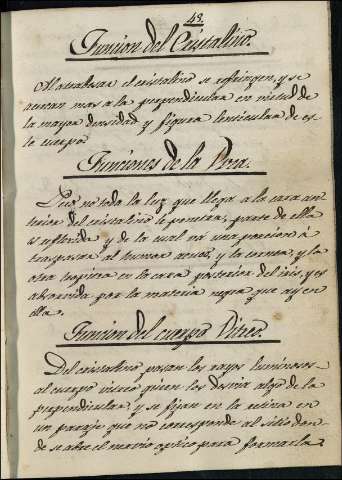 43.
Funcion del Cristalino.
Al atrabesar el cristalino se refringen, y se
acercan mas a la perpendicular en virtud de
la mayor densidad y figura lenticular de es-
te cuerpo
Funciones de la
Pero no toda la luz que llega a la cara an-
terior del cristalino le penetra, parte de ella
es reflexida y de la cual una porcion
traspasar al humor acuo, y la cornea, y la
otra tropieza en la cara posterior del iris, y es
absorvida por la materia negra que ay en
ella.
Funcion del cuerpo Vitreo.
Del cristalino pasan los rayos luminosos
al cuerpo vitreo quien los desvia algo de la
perpendicular y se fijan en la retina en
un paraje que no corresponde al sitio don-
de se abre el nervio optico para formarla